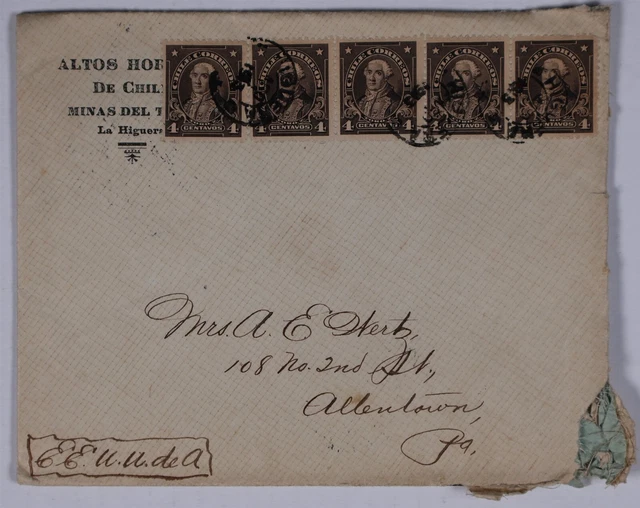 ALTOS HOR
DE CHIL
MINAS DEL T
La Higuer
CHILE CORREOS CHILE CORREOS CHILE CORREOS CHILE CORREOS CHILE CORREOS
4 CENTAVOS 4 4 CENTAVOS 4 4 CENTAVOS 4 4 CENTAVOS 4 CENTAVOS
Mrs. A. E Wertz,
108 No. 2nd St.,
Allentown,
Pa.
EE. U.U. de A